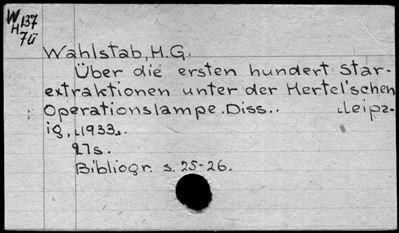 W
H 137
7ü
Wahlstab, H.G.
Über die ersten hundert Star-
extraktionen unter der Hertel'schen
Operationslampe. Diss.. Leipz-
ig, 1933.
27s.
Bibliogr. s. 25-26.